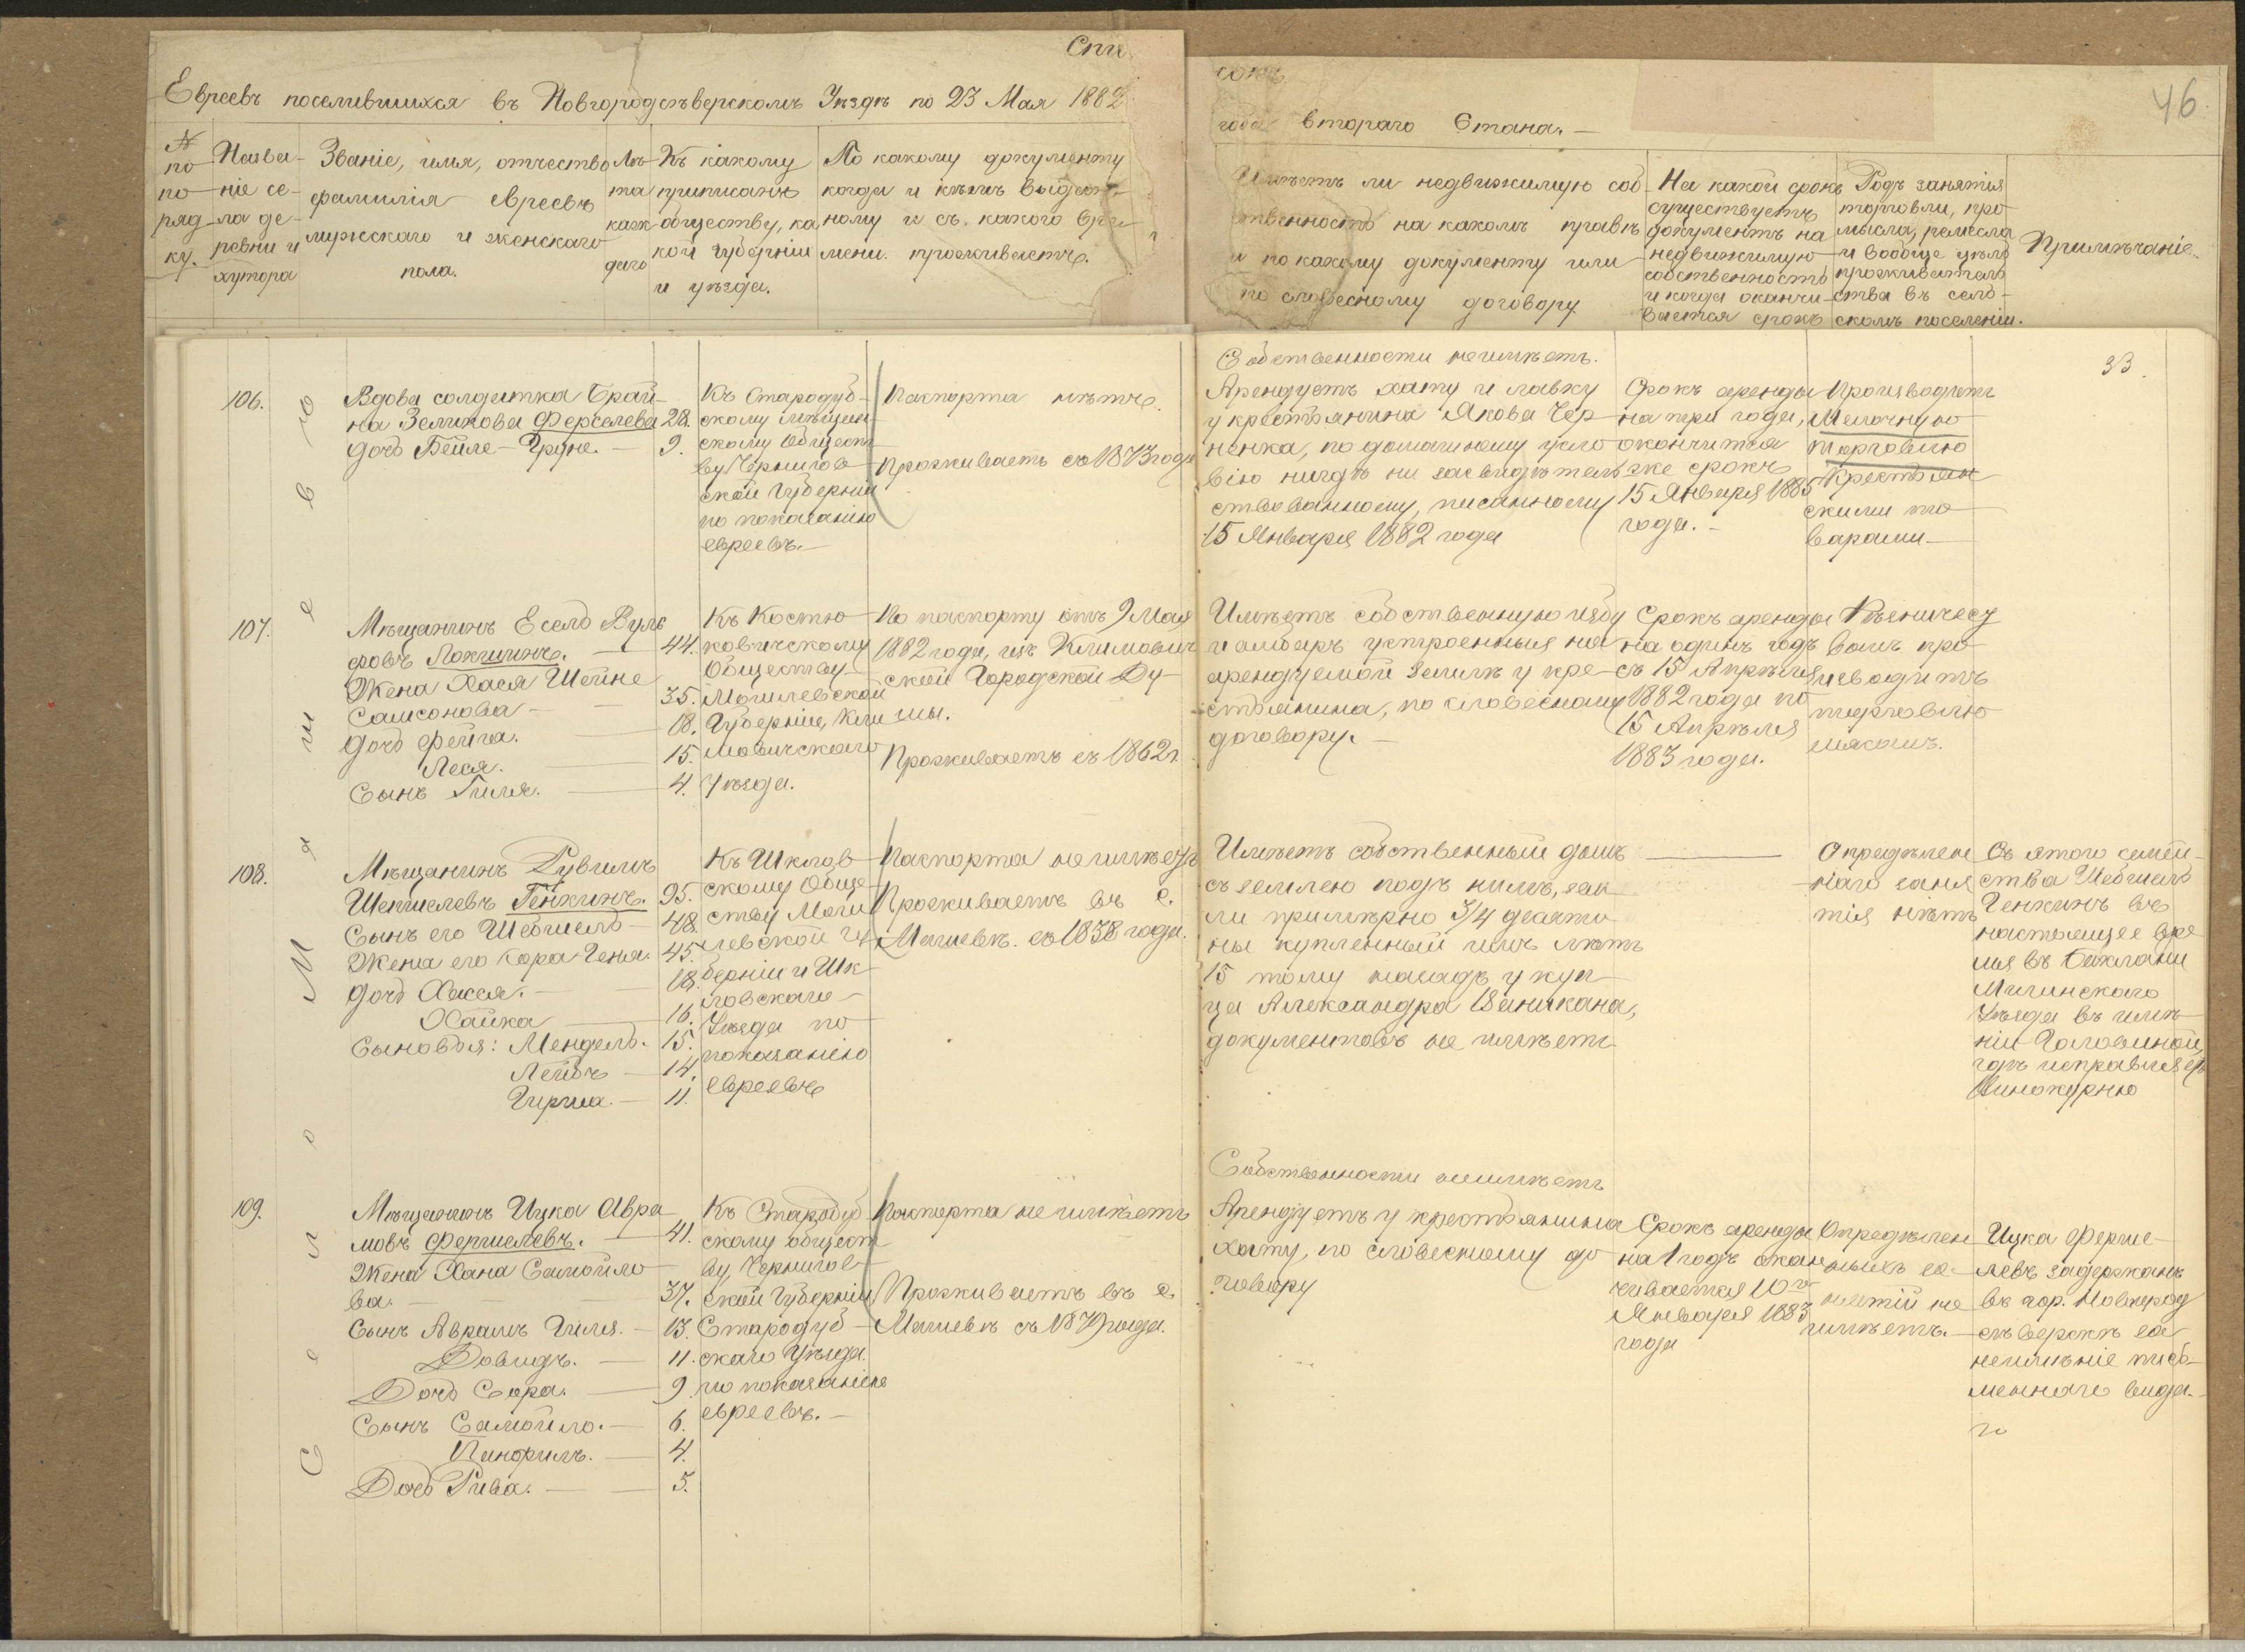 Спи
сокъ
Евреевъ поселившихся въ Новгородсѣверскомъ Уѣздѣ по 23 Мая 1882
года втораго Стана.
46
№ по порядку.
Названіе села деревни и хутора
Званіе, имя, отчество
фамилія евреевъ
мужскаго и женскаго
пола.
Лѣта каждаго
Къ какому
приписанъ
обществу, ка
кой губерніи
и уѣзда.
По какому документу
когда и кѣмъ выдан-
ному и съ какого вре-
мени проживаетъ.
Имѣетъ ли недвижимую соб
ственность на какомъ правѣ
и по какому документу или
по словесному договору
На какой срокъ
существуетъ
документъ на
недвижимую
собственность
и когда оканчи-
вается срокъ
Родъ занятія
торговли, про
мысла, ремесла
и вообще цѣль
прожиатель
ства въ сель-
скомъ поселеніи.
Примѣчаніе.
33.
Село Мишево
106.
Вдова солдатка Брай-
на Зеликова Ферселева 28.
дочь Бейле-Груне. — 9.
Къ Стародуб-
скому мѣщан-
скому общест
ву Чернигов
ской Губерніи
по показанію
евреевъ.
Паспорта нѣтъ.
Проживаетъ съ 1873 года
Собственности не имѣетъ.
Арендуетъ хату и лавку
у крестьянина Якова Чер
ненка, по домашнему усло
вію нигдѣ не засвидѣтель
ствованному, писанному
15 Января 1882 года
Срокъ аренды
на три года,
окончится
же срокъ
15 Января 1885
года. -
Производитъ
мелочную
торговлю
крестьян
скими то
варами
107.
Мѣщанинъ Есель Вуль
фовъ Локшинъ. — 44.
Жена Хася Шейне
Самсонова — 35.
дочь Фейга. — 18.
Леся. — 15.
Сынъ Гиля. — 4.
Къ Костю
ковичскому
Обществу
Могилевской
Губерніи, Кли
мовичскаго
Уѣзда.
По паспорту отъ 9 Мая
1882 года, изъ Климович
ской Городской Ду-
мы.
Проживаетъ съ 1862 г.
Имѣетъ собственную избу
и амбаръ устроенныя на
арендуемой землѣ у кре-
стьянина, по словесному
договору. -
Срокъ аренды
на одинъ годъ
съ 15 Апрѣля
1882 года по
15 Апрѣля
1883 года.
Рѣзничес
вомъ про
изводитъ
торговлю
мясомъ.
108.
Мѣщанинъ Рувимъ
Шепшелевъ Генкинъ. 95.
Сынъ его Шебшель — 48.
Жена его Сора Геня. 45.
дочь Хася. — 18.
Хайка — 16.
Сыновья: Мендель. 15.
Лейбъ — 14.
Гирша. — 11.
Къ Шклов
скому Обще
ству Моги
левской Гу
берніи и Шк
ловскаго
Уѣзда по
показанію
евреевъ
Паспорта не имѣетъ
Проживаетъ въ с.
Машевѣ съ 1838 года.
Имѣетъ собственный домъ
съ землею подъ нимъ, зем
ли примѣрно 3/4 десяти
ны купленный имъ лѣтъ
15 тому назадъ у куп
ца Александра,
документовъ не имѣетъ
Опредѣлен
наго заня
тія нѣтъ
Съ этого семей-
ства Шебшель
Генкинъ въ
настоящее вре
мя въ Баклани
Мглинскаго
Уѣзда въ имѣ
ніи Головиной,
гдѣ исправляетъ
Винокурню
109.
Мѣщанинъ Ицка Авра
мовъ Фершелевъ. — 41.
Жена Хана Самойло
ва. — 37.
Сынъ Аврамъ Гиля. — 13.
Довидъ. — 11.
Дочь Сора. — 9.
Сынъ Самойло. — 6.
Панфилъ. — 4.
Дочь Рива. — 5.
Къ Стародуб
скому общест
ву, Чернигов
ской Губерніи
Стародуб
скаго Уѣзда
по показанію
евреевъ. —
Паспорта не имѣетъ
Проживаетъ въ с.
Машевѣ съ 1879 года.
Собственности не имѣетъ
Арендуетъ у крестьянина
хату, по словесному до
говору
Срокъ аренды
на 1 годъ окан
чивается 10го
Января 1883
года
Опредѣлен
ныхъ за-
нятій не
имѣетъ. —
Ицка Ферше-
левъ задержанъ
въ гор. Новгород
сѣверскѣ за
неимѣніе пись-
меннаго вида.